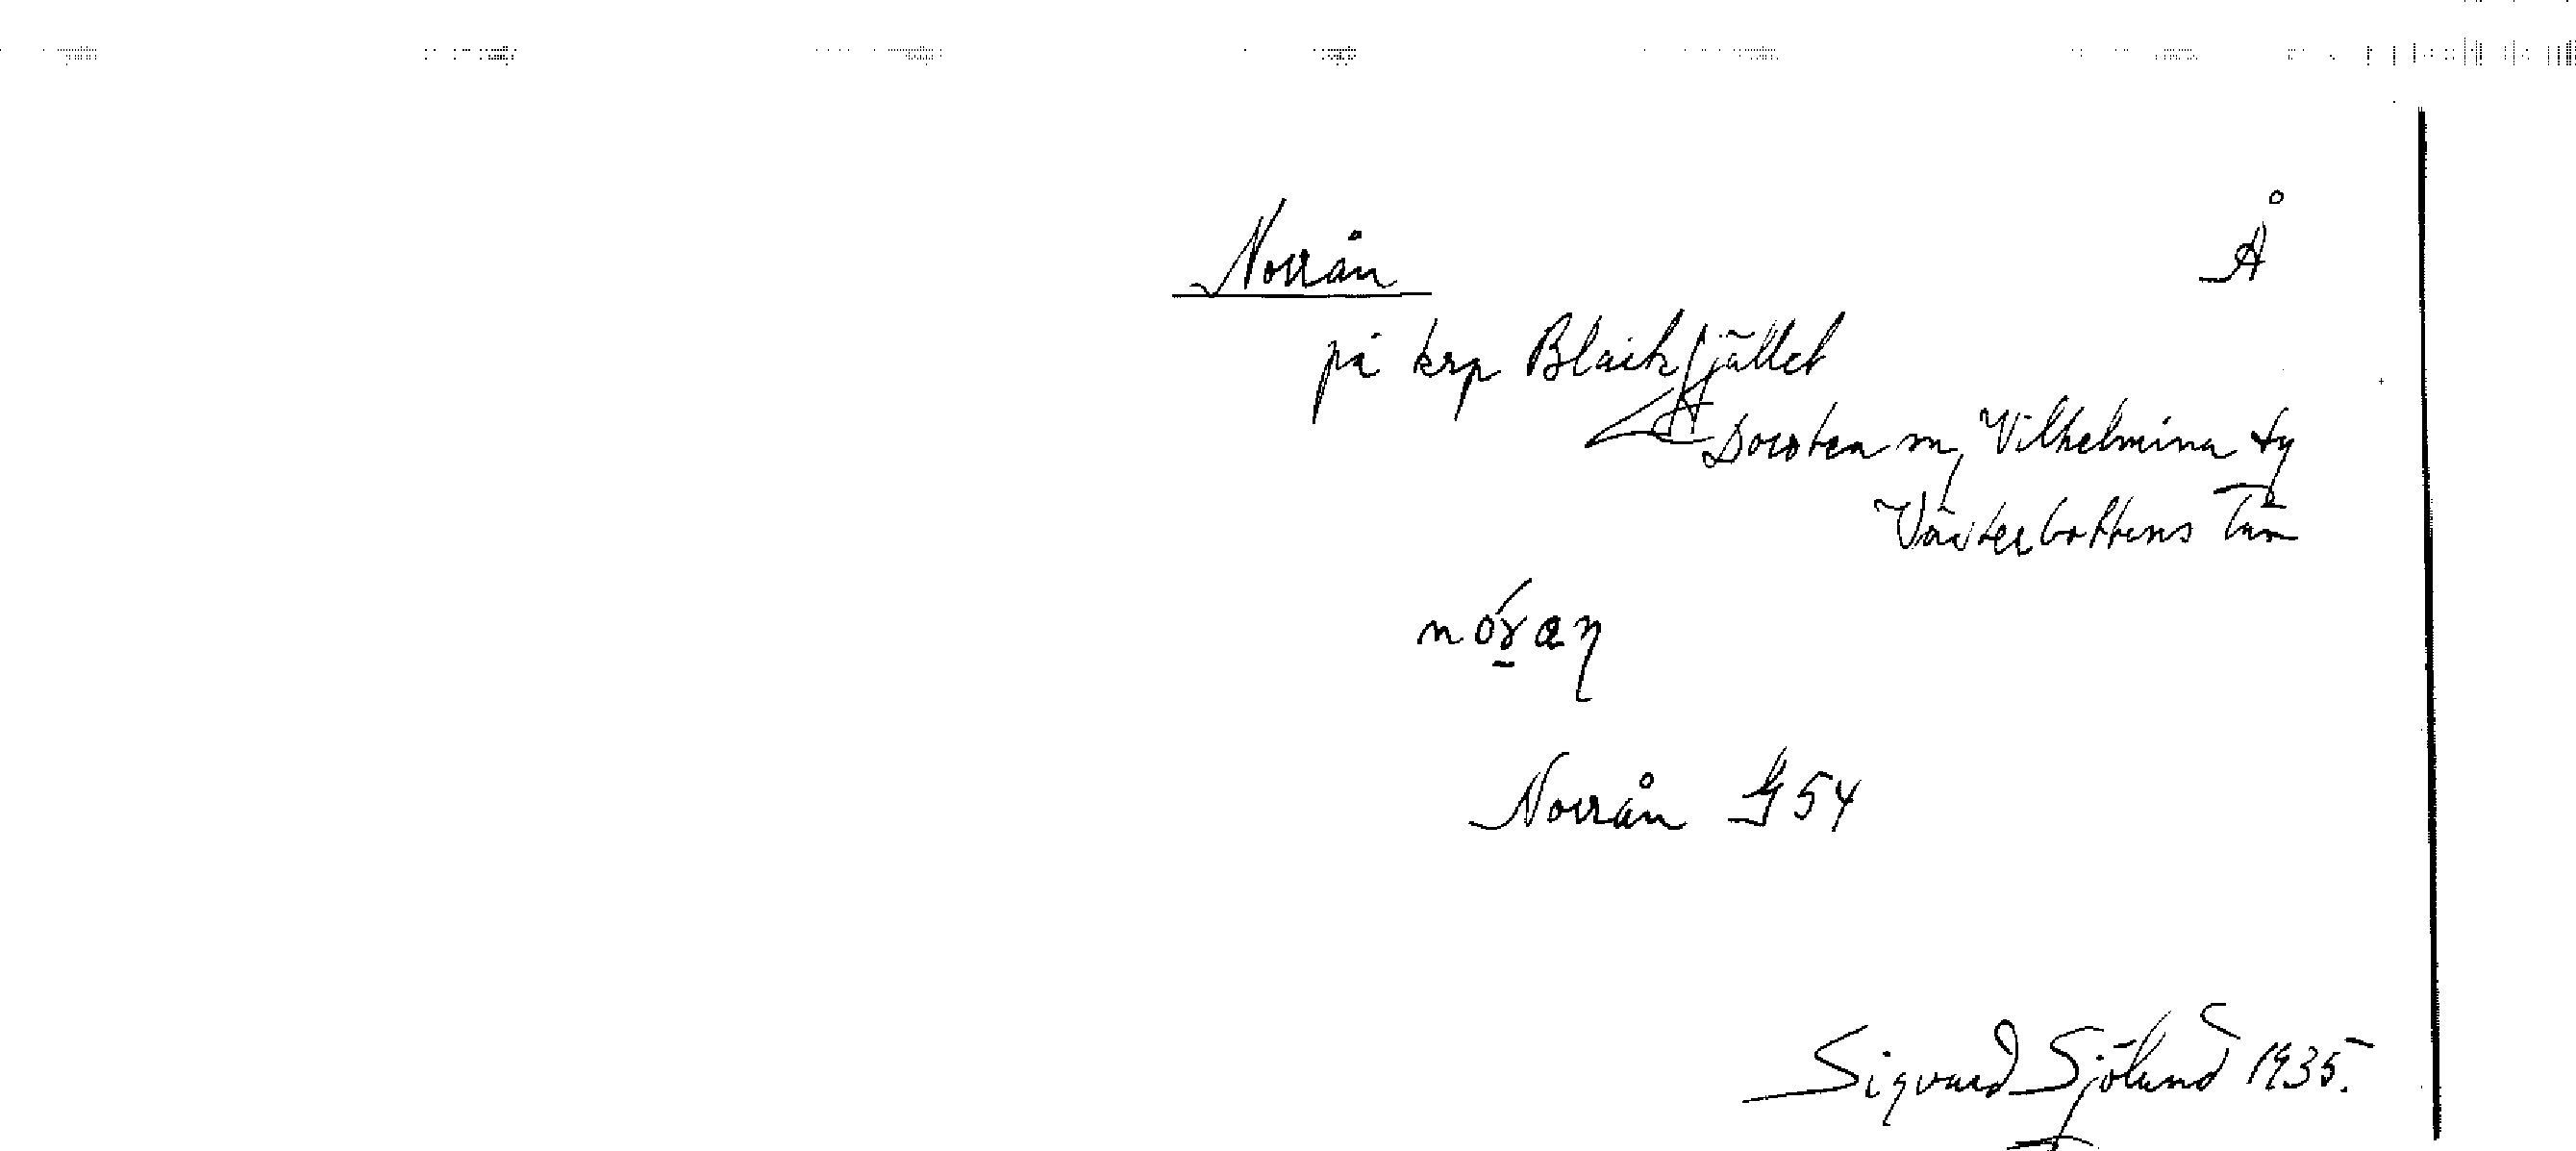 Norrån Å
på krp Blaikfjället
Dorotea sn, Vilhelmina tg
Västerbottens län
nóran
Norrån G 54
Sigvard Sjölund 1935.